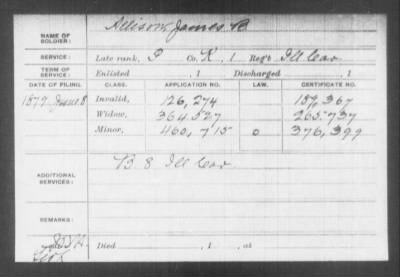 NAME OF SOLDIER: Allison, James R
SERVICE: Late rank, P Co. K, 1 Reg't Ill Cav
TERM OF SERVICE: Enlisted , 1 Discharged , 1
DATE OF FILING. CLASS. APPLICATION NO. LAW. CERTIFICATE NO.
1879 June 8 Invalid, 126,274 159,367
Widow, 364.527 265.737
Minor, 460,715 0 376,399
ADDITIONAL SERVICES: B 8 Ill Cav
REMARKS:
Died , 1 , at